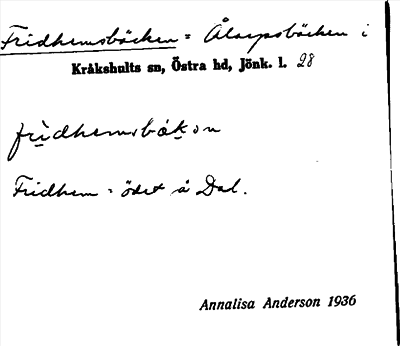 Fridhemsbäcken = Ålarpsbäcken i
Kråkshults sn, Östra hd, Jönk. l. 28
frìdhemsbäkən
Fridhem = ödet å Dal.
Annalisa Anderson 1936